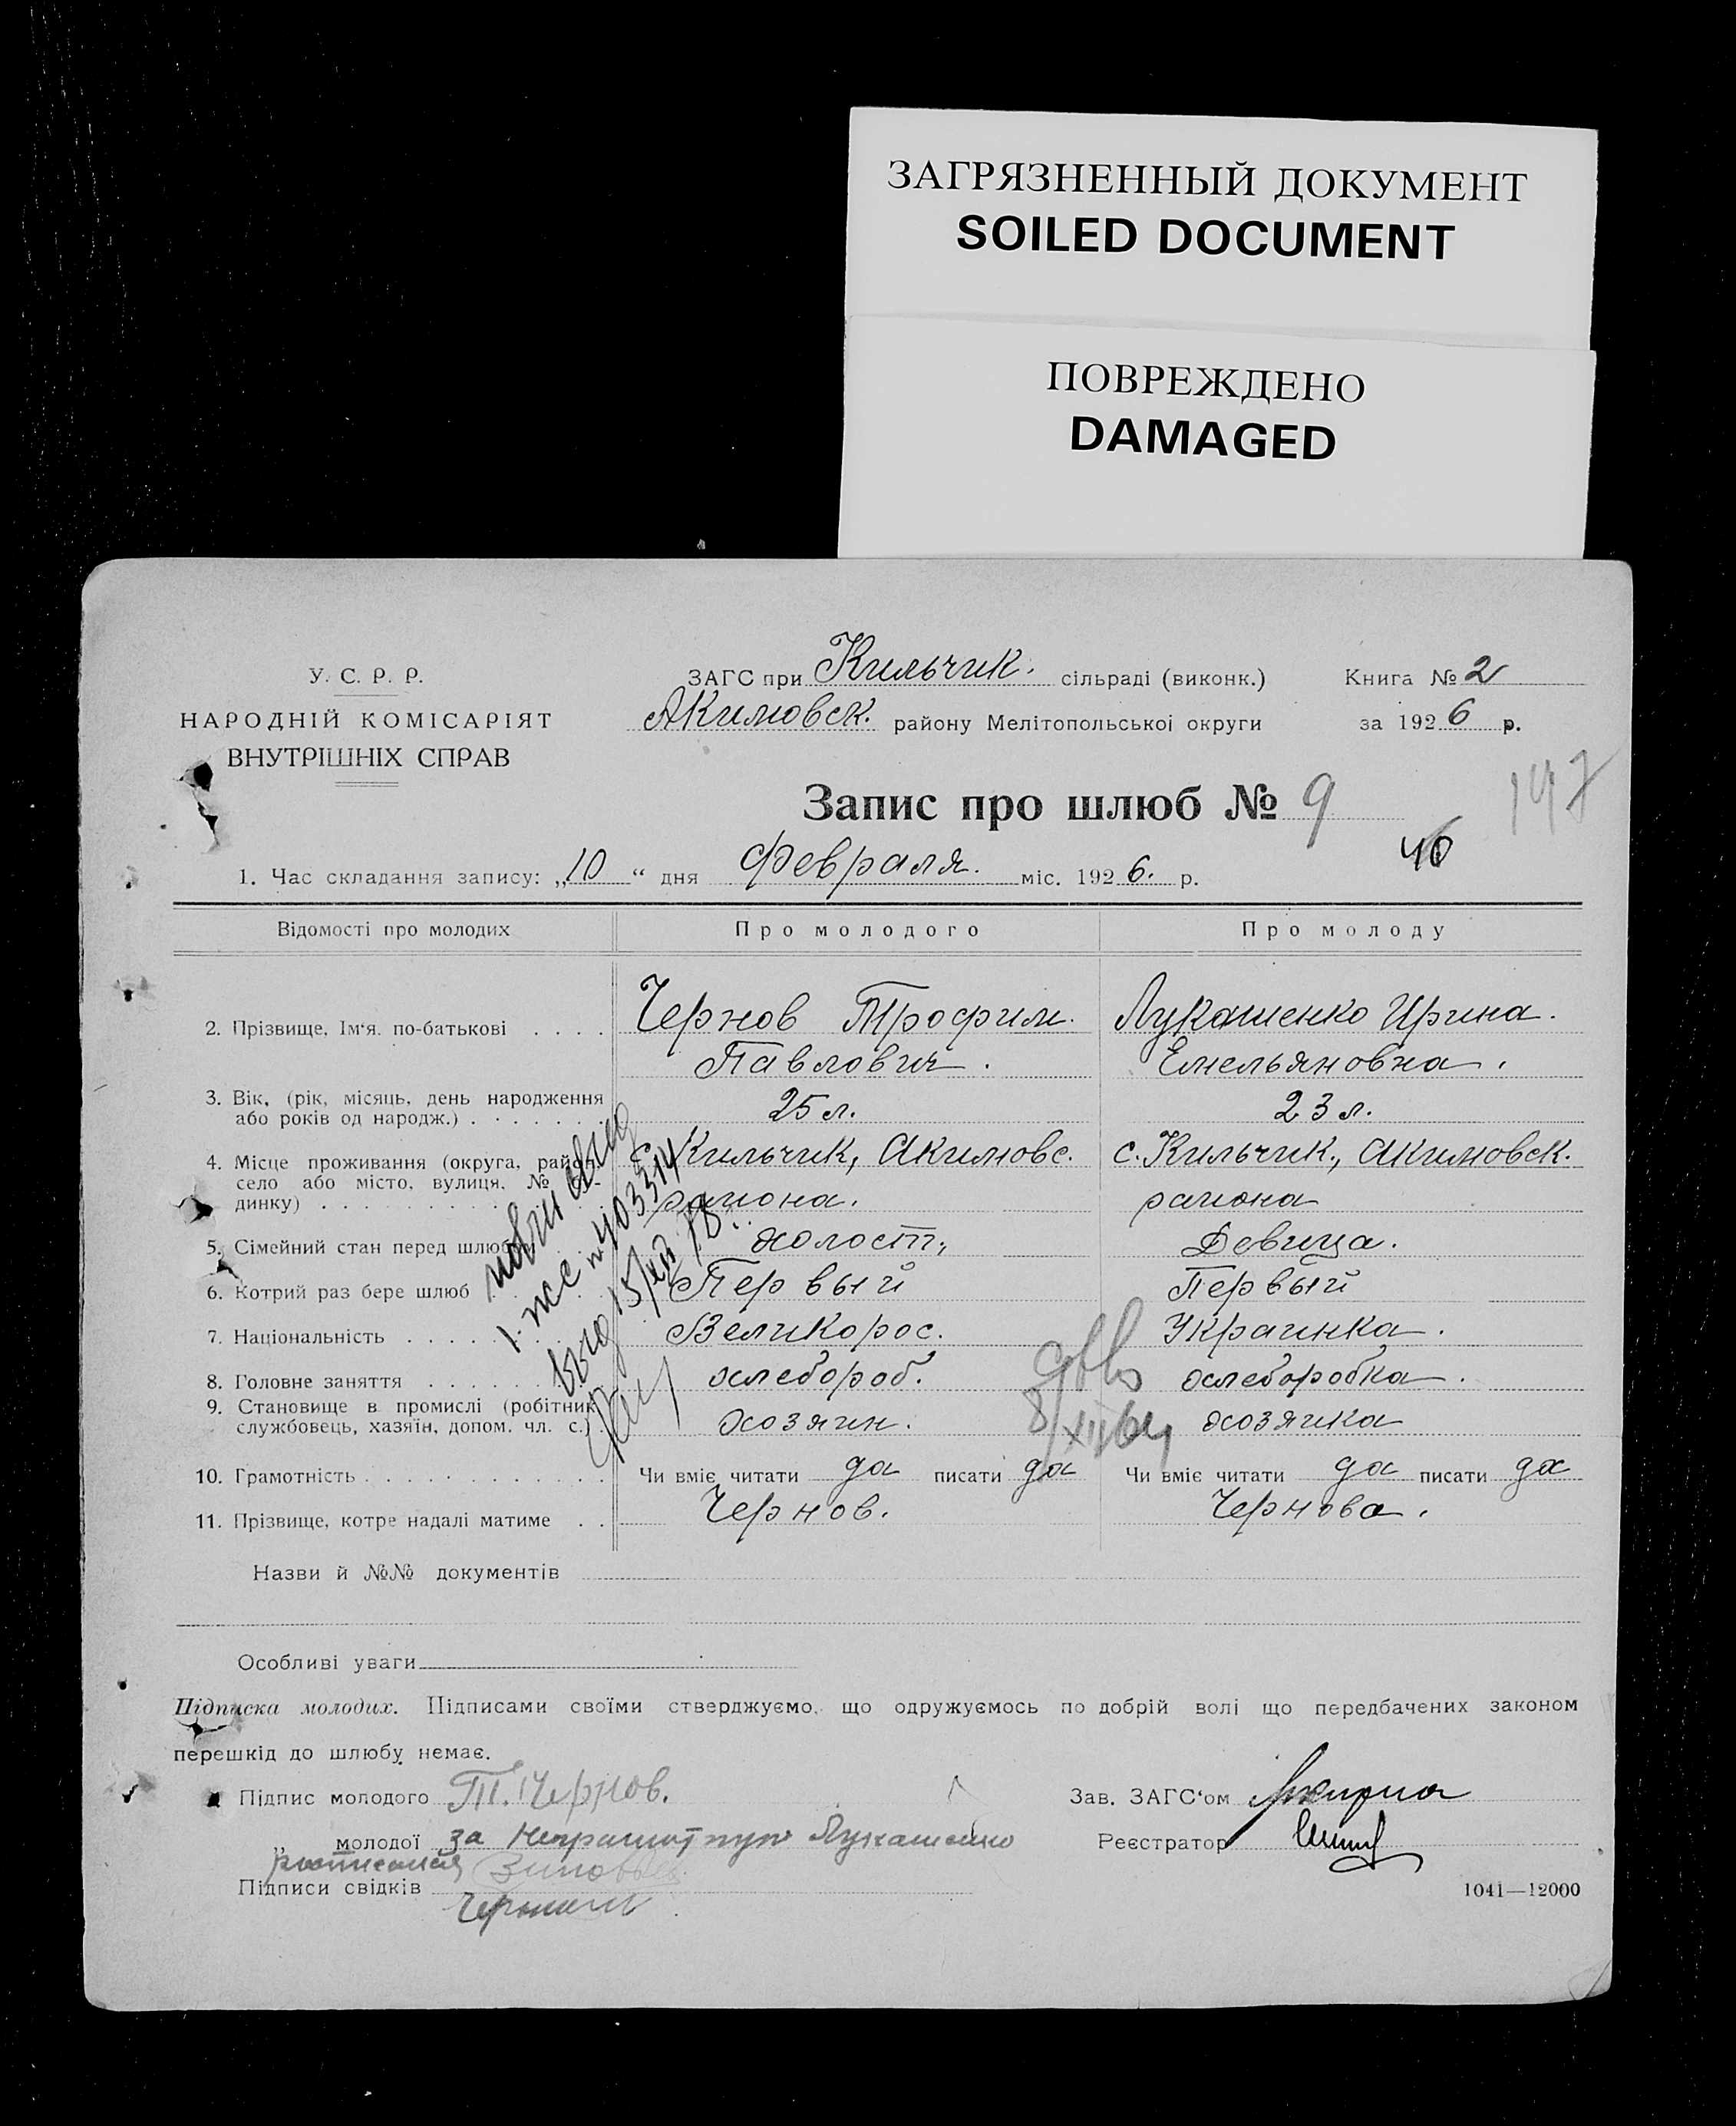 ЗАГРЯЗНЕННЫЙ ДОКУМЕНТ
SOILED DOCUMENT
ПОВРЕЖДЕНО
DAMAGED
У. С. Р. Р.
НАРОДНІЙ КОМІСАРІЯТ
ВНУТРІШНІХ СПРАВ
ЗАГС при Кильчик. сільраді (виконк.)
Акимовск. району Мелітопольськоі округи
Книга № 2
за 1926 р.
Запис про шлюб № 9
147
40
1. Час складання запису: „10“ дня февраля. міс. 1926. р.
Відомості про молодих Про молодого Про молоду
2. Прізвище, Ім'я, по-батькові . . . . Чернов Трофим. Лукашенко Ирина.
Павлович. Емельяновна.
3. Вік, (рік, місяць, день народження
або років од народж.) . . . . . . 25 л. 23 л.
4. Місце проживання (округа, район, с. Кильчик, Акимовс. с. Кильчик., Акимовск.
село або місто, вулиця, №
динку) . . . . . . . . . района. района
5. Сімейний стан перед шлюбом холост, Девица.
6. Котрий раз бере шлюб Первый Первый
7. Національність . . . . . Великорос. Украинка.
8. Головне заняття . . . . . хлебороб. хлеборобка.
9. Становище в промислі (робітник
службовець, хазяїн, допом. чл. с.) . хозяин. хозяйка
10. Грамотність . . . . . . . . . . . . Чи вміє читати да писати да Чи вміє читати да писати да
11. Прізвище, котре надалі матиме . . Чернов. Чернова.
403314
8/XII 64
Назви й №№ документів
Особливі уваги
Підписка молодих. Підписами своїми стверджуємо, що одружуємось по добрій волі що передбачених законом
перешкід до шлюбу немає.
Підпис молодого Т. Чернов.
Зав. ЗАГС'ом
„ молодої за неграмотную Лукашенко
Реєстратор
расписался
Підписи свідків
1041—12000